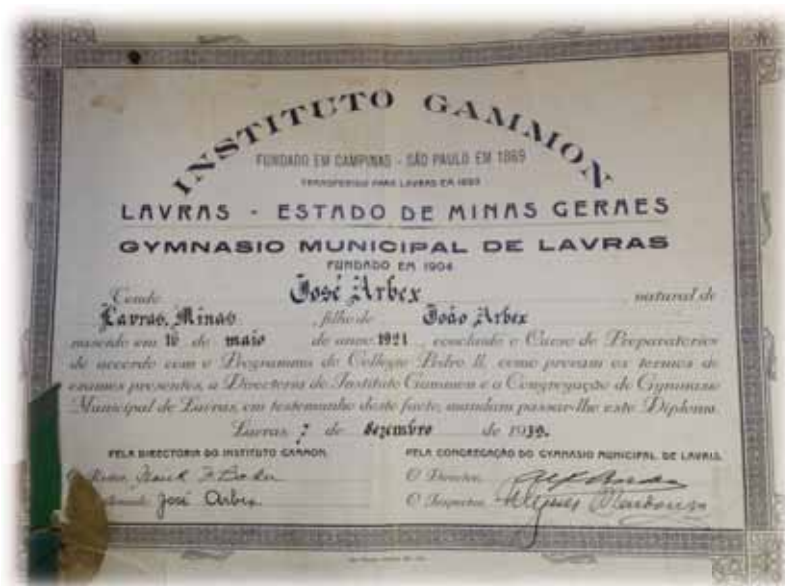 INSTITUTO GAMMON
FUNDADO EM CAMPINAS - SÃO PAULO EM 1869
TRANSFERIDO PARA LAVRAS EM 1893
LAVRAS - ESTADO DE MINAS GERAES
GYMNASIO MUNICIPAL DE LAVRAS
FUNDADO EM 1904
Tendo José Arbex natural de
Lavras, Minas, filho de João Arbex
nascido em 16 de maio do anno 1921, concluido o Curso de Preparatorios
de accordo com o Programma do Collegio Pedro II, como provam os termos de
exames presentes, a Directoria do Instituto Gammon e a Congregação do Gymnasio
Municipal de Lavras, em testemunho deste facto, mandam passar-lhe este Diploma.
Lavras, 7 de dezembro de 1939.
PELA DIRECTORIA DO INSTITUTO GAMMON. PELA CONGREGAÇÃO DO GYMNASIO MUNICIPAL DE LAVRAS.
O Reitor, Frank F. Baker O Director,
José Arbex O Inspector,